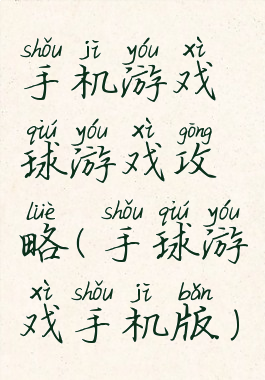 shǒu jī yóu xì
手机游戏
qiú yóu xì gōng
球游戏攻
lüè shǒu qiú yóu
略(手球游
xì shǒu jī bǎn
戏手机版)